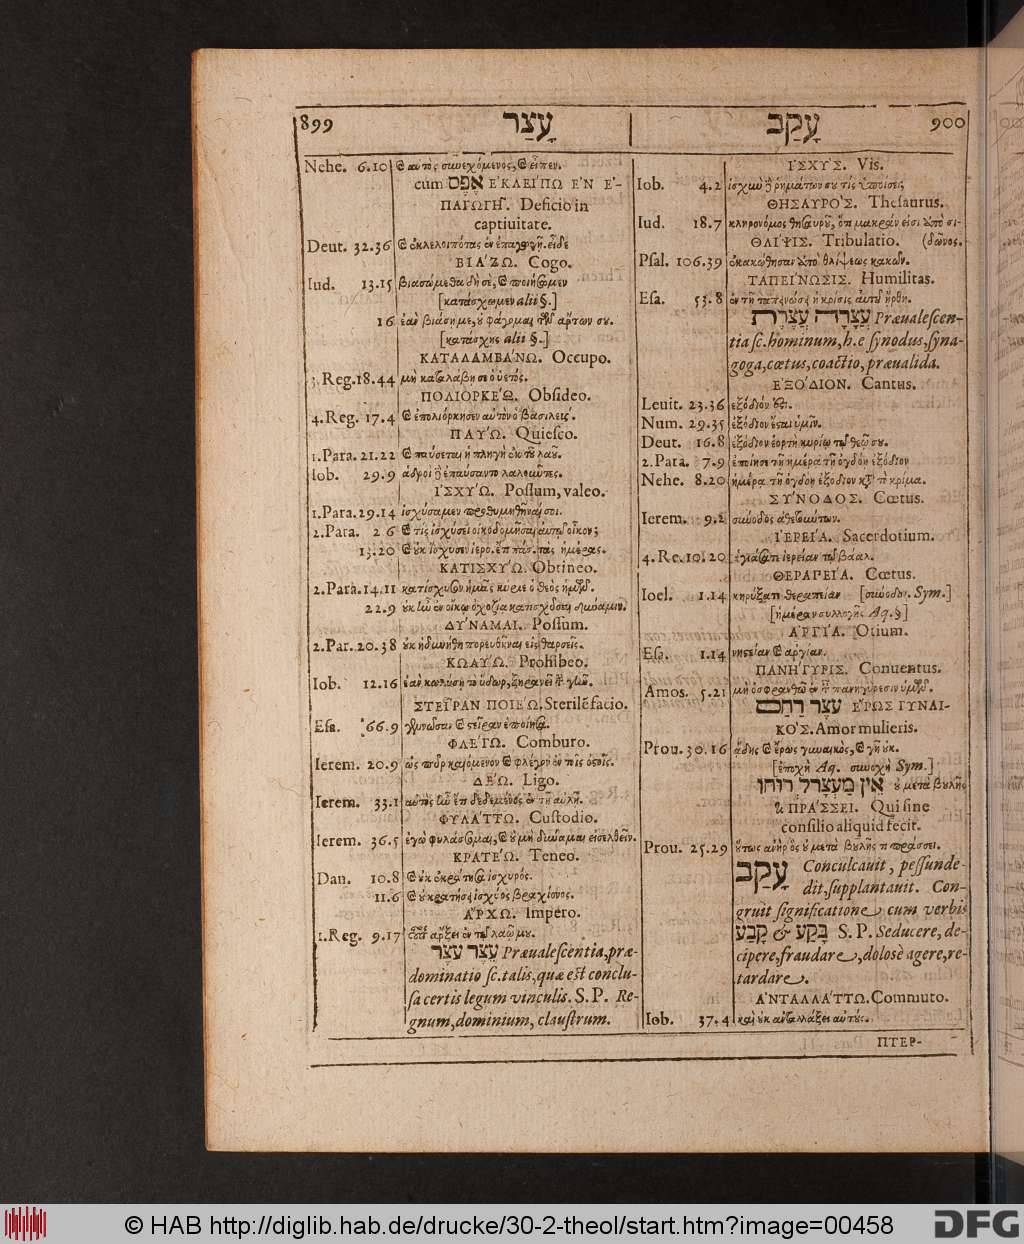 899 עָצַר
Nehe. 6.10 & αὐτὸς συνεχόμενος, & εἶπεν.
cum אֶפֶס ἘΚΛΕΙΠΩ ἘΝ Ἐ-
ΠΑΓΩΓΗ͂. Deficio in
captiuitate.
Deut. 32.36
ΒΙΑΖΩ. Cogo.
Iud. 13.15 βιασώμεθα δή σε, & ποιήσωμεν
[κατάσχωμεν alii §.]
16 ἐὰν βιάσῃ με, ȣ φάγομαι τῶν ἄρτων σȣ.
[κατάσχῃς alii §.]
ΚΑΤΑΛΑΜΒΆΝΩ. Occupo.
3. Reg. 18.44 μὴ καταλάβῃ σε ὁ ὑετός.
ΠΟΛΙΟΡΚΈΩ. Obsideo.
4. Reg. 17.4 & ἐπολιόρκησεν αὐτὸν ὁ βασιλεὺς.
ΠΑΎΩ. Quiesco.
1. Para. 21.22 & παύσεται ἡ πληγὴ ἐκ τοῦ λαοῦ.
Iob. 29.9 ἁδροὶ δὲ ἐπαύσαντο λαλοῦντες.
ἸΣΧΎΩ. Possum, valeo.
1. Para. 29.14 ἰσχύσαμεν προθυμηθῆναί σοι.
2. Para. 2 6 & τίς ἰσχύσει οἰκοδομῆσαι αὐτῷ οἶκον;
13.20 & ȣκ ἴσχυσεν ἱερο. ἔτι πάσ. τὰς ἡμέρας.
ΚΑΤΙΣΧΎΩ. Obtineo.
2. Para. 14.11
22.9
ΔΎΝΑΜΑΙ. Possum.
2. Par. 20.38 ȣκ ἠδυνήθη πορευθῆναι εἰς θαρσεῖς.
ΚΩΛΎΩ. Prohibeo.
Iob. 12.16 ἐὰν κωλύσῃ τὸ ὕδωρ, ξηρανεῖ τὴν γῆν.
ΣΤΕΙ͂ΡΑΝ ΠΟΙΕΏ. Sterilē facio.
Esa. 66.9
ΦΛΈΓΩ. Comburo.
Ierem. 20.9 ὡς πῦρ καιόμενον & φλέγον ἐν τοῖς ὀστοῖς.
ΔΈΩ. Ligo.
Ierem. 33.1 αὐτὸς ἦν ἔτι δεδεμένος ἐν τῇ αὐλῇ.
ΦΥΛΆΤΤΩ. Custodio.
Ierem. 36.5 ἐγὼ φυλάσσομαι, & ȣ μὴ δύνωμαι εἰσελθεῖν.
ΚΡΑΤΈΩ. Teneo.
Dan. 10.8 & ȣκ ἐκράτησα ἰσχύος.
11.6 & ȣ κρατήσει ἰσχύος βραχίονος.
ἌΡΧΩ. Impero.
1. Reg. 9.17 ȣτος ἄρξει ἐν τῷ λαῷ μȣ.
עֹצֶר עֶצֶר Præualescentia, præ-
dominatio sc. talis, quæ est conclu-
sa certis legum vinculis. S.P. Re-
gnum, dominium, claustrum.
עָקַב 900
ἸΣΧΎΣ. Vis.
Iob. 4.2 ἰσχὺν δὲ ῥημάτων σȣ τίς ὑποίσει;
ΘΗΣΑΥΡΌΣ. Thesaurus.
Iud. 18.7
ΘΛΊΨΙΣ. Tribulatio. (δῶνος.
Psal. 106.39 ἐκακώθησαν ἀπὸ θλίψεως κακῶν.
ΤΑΠΕΊΝΩΣΙΣ. Humilitas.
Esa. 53.8 ἐν τῇ ταπεινώσει ἡ κρίσις αὐτȣ ἤρθη.
עֲצָרָה עֲצֶרֶת Præualescen-
tia sc. hominum, h.e synodus, syna-
goga, cœtus, coactio, præualida.
ἘΞΌΔΙΟΝ. Cantus.
Leuit. 23.36 ἐξόδιόν ἐστι.
Num. 29.35 ἐξόδιον ἔσται ὑμῖν.
Deut. 16.8 ἐξόδιον ἑορτὴ κυρίῳ τῷ θεῷ σȣ.
2. Para. 7.9 ἐποίησε τῇ ἡμέρᾳ τῇ ὀγδόῃ ἐξόδιον
Nehe. 8.20 ἡμέρᾳ τῇ ὀγδόῃ ἐξόδιον κατὰ τὸ κρίμα.
ΣΎΝΟΔΟΣ. Cœtus.
Ierem. 9.2 σύνοδος ἀθετούντων.
ἹΕΡΕΊΑ. Sacerdotium.
4. Re. 10.20 ἁγιάσατε ἱερείαν τῷ βάαλ.
ΘΕΡΑΠΕΊΑ. Cœtus.
Ioel. 1.14 κηρύξατε θεραπείαν [σύνοδον. Sym.]
[ἡμέραν συλλογῆς Aq. §]
ἈΡΓΊΑ. Otium.
Esa. 1.14 νηστείαν & ἀργίαν.
ΠΑΝΉΓΥΡΙΣ. Conuentus.
Amos. 5.21 μὴ ὀσφρανθῶ ἐν ταῖς πανηγύρεσιν ὑμῶν.
עֹצֶר רָחַם ἜΡΩΣ ΓΥΝΑΙ-
ΚΌΣ. Amor mulieris.
Prou. 30.16 ᾅδης & ἔρως γυναικὸς, & γῆ ȣκ.
[ἐποχὴ Aq. συνοχὴ Sym.]
אֵין מַעְצָר לְרוּחוֹ ȣ μετὰ βȣλῆς
ΤΙ ΠΡΆΣΣΕΙ. Qui sine
consilio aliquid fecit.
Prou. 25.29 ȣτως ἀνὴρ ὃς ȣ μετὰ βȣλῆς τι πράσσει.
עָקַב Conculcauit, pessunde-
dit, supplantauit. Con-
gruit significatione cum verbis
בָּקַע & קָבַע S.P. Seducere, de-
cipere, fraudare, dolosè agere, re-
tardare.
ἈΝΤΑΛΛΆΤΤΩ. Commuto.
Iob. 37.4 καὶ ȣκ ἀνταλλάξει αὐτȣς.
ΠΤΕΡ-
© HAB http://diglib.hab.de/drucke/30-2-theol/start.htm?image=00458
DFG